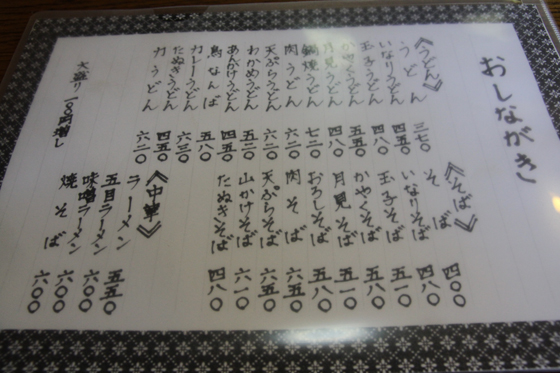 おしながき
《うどん》
うどん 三七〇
いなりうどん 四五〇
玉子うどん 四八〇
かやくうどん 五五〇
月見うどん 四八〇
鍋焼うどん 七二〇
肉うどん 六二〇
天ぷらうどん 六二〇
わかめうどん 五二〇
あんかけうどん 四五〇
鳥なんば 五八〇
カレーうどん 六三〇
たぬきうどん 四五〇
力うどん 六二〇
大盛り一〇〇円増し
《そば》
そば 四〇〇
いなりそば 四八〇
玉子そば 五一〇
かやくそば 五八〇
月見そば 五一〇
おろしそば 五八〇
肉そば 六五〇
天ぷらそば 六五〇
山かけそば 六一〇
たぬきそば 四八〇
《中華》
ラーメン 五五〇
五目ラーメン 六〇〇
味噌ラーメン 六〇〇
焼そば 六〇〇